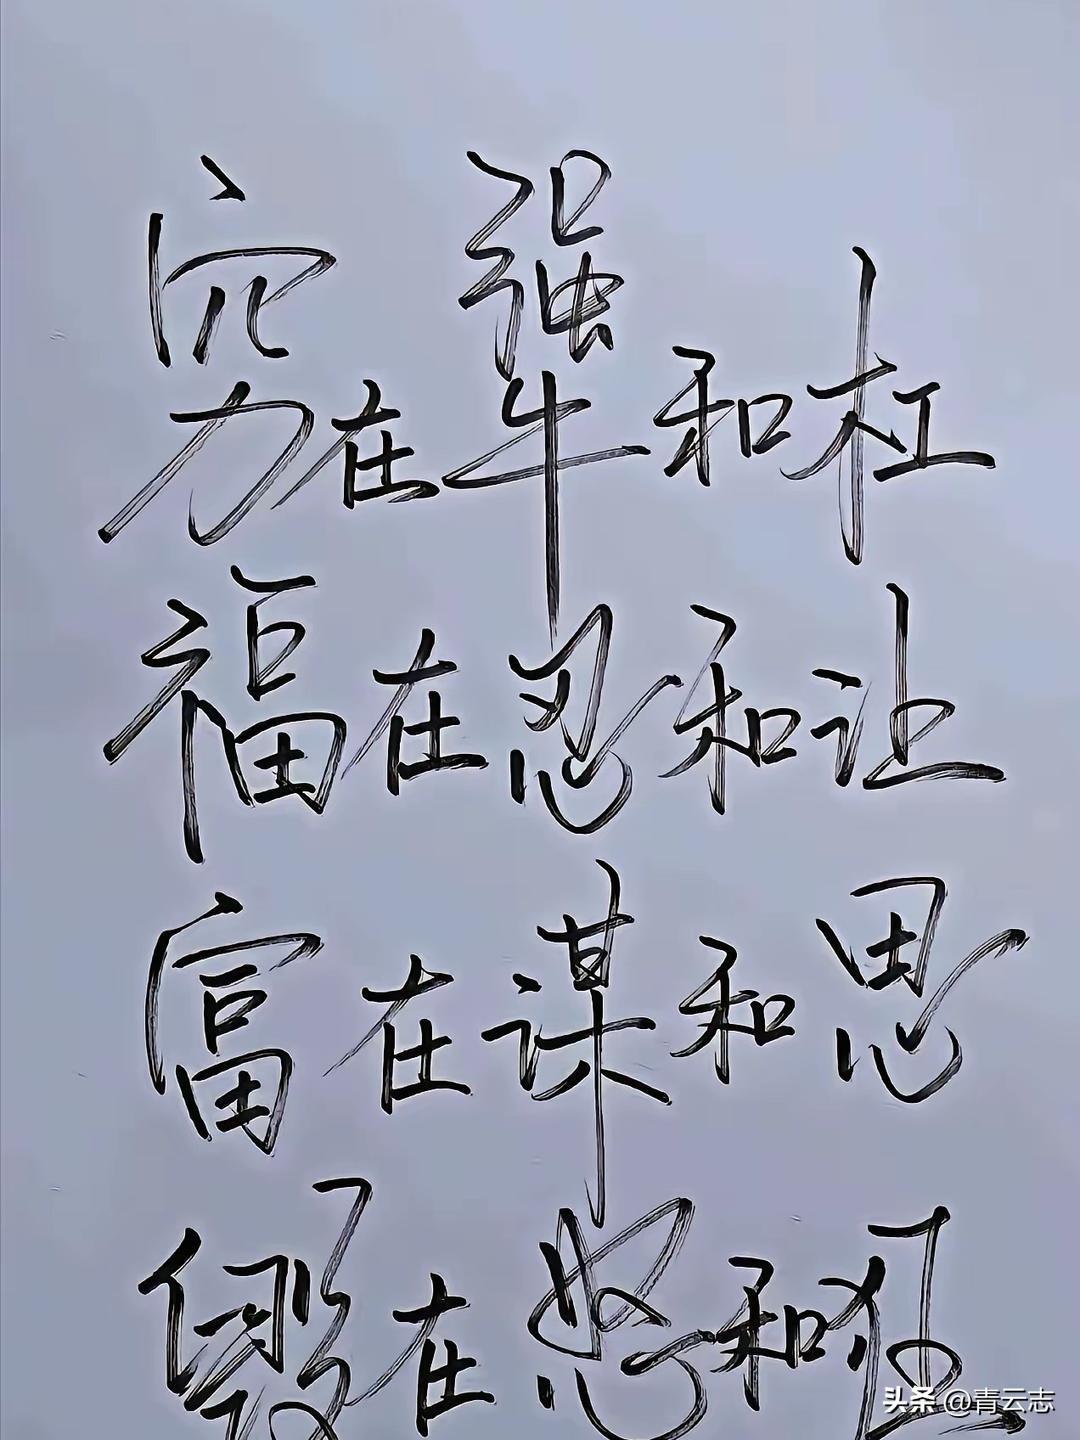 穷在犟和杠
福在忍和让
富在谋和思
毁在怒和
头条 @青云志